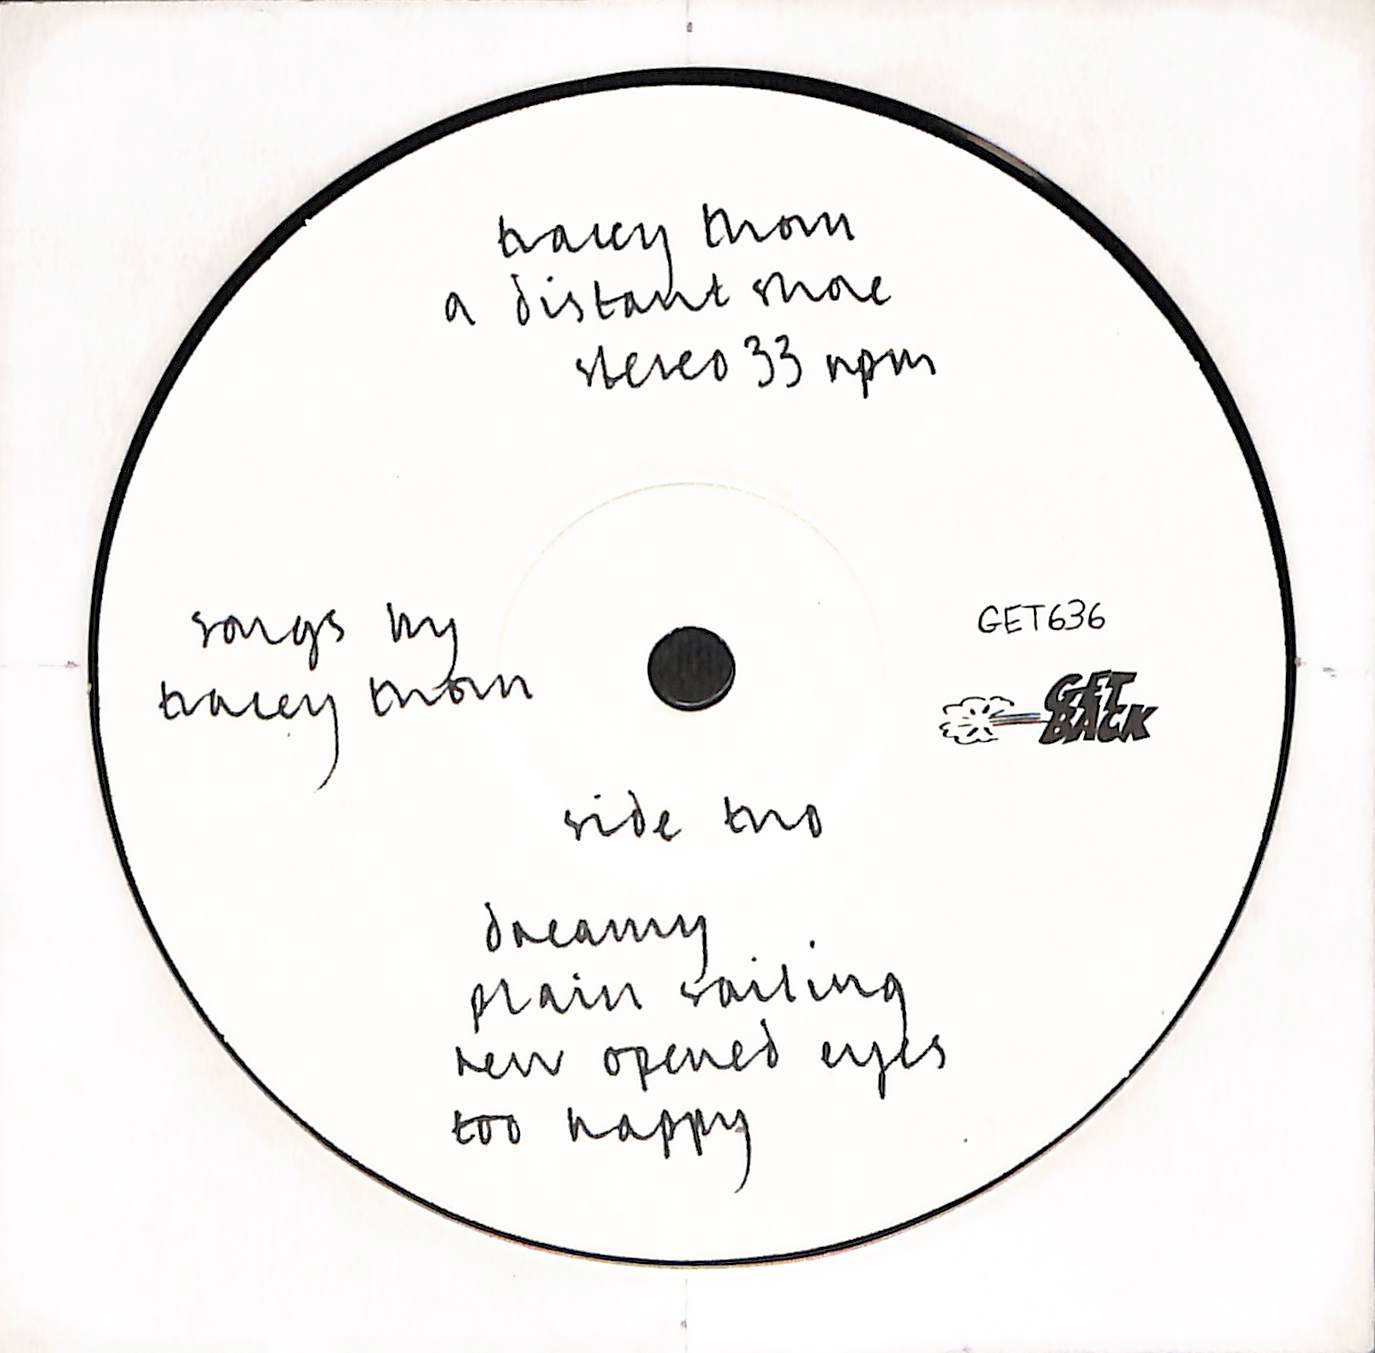 tracey thorn
a distant shore
stereo 33 rpm
songs by
tracey thorn
GET636
GET
BACK
side two
dreamy
plain sailing
new opened eyes
too happy